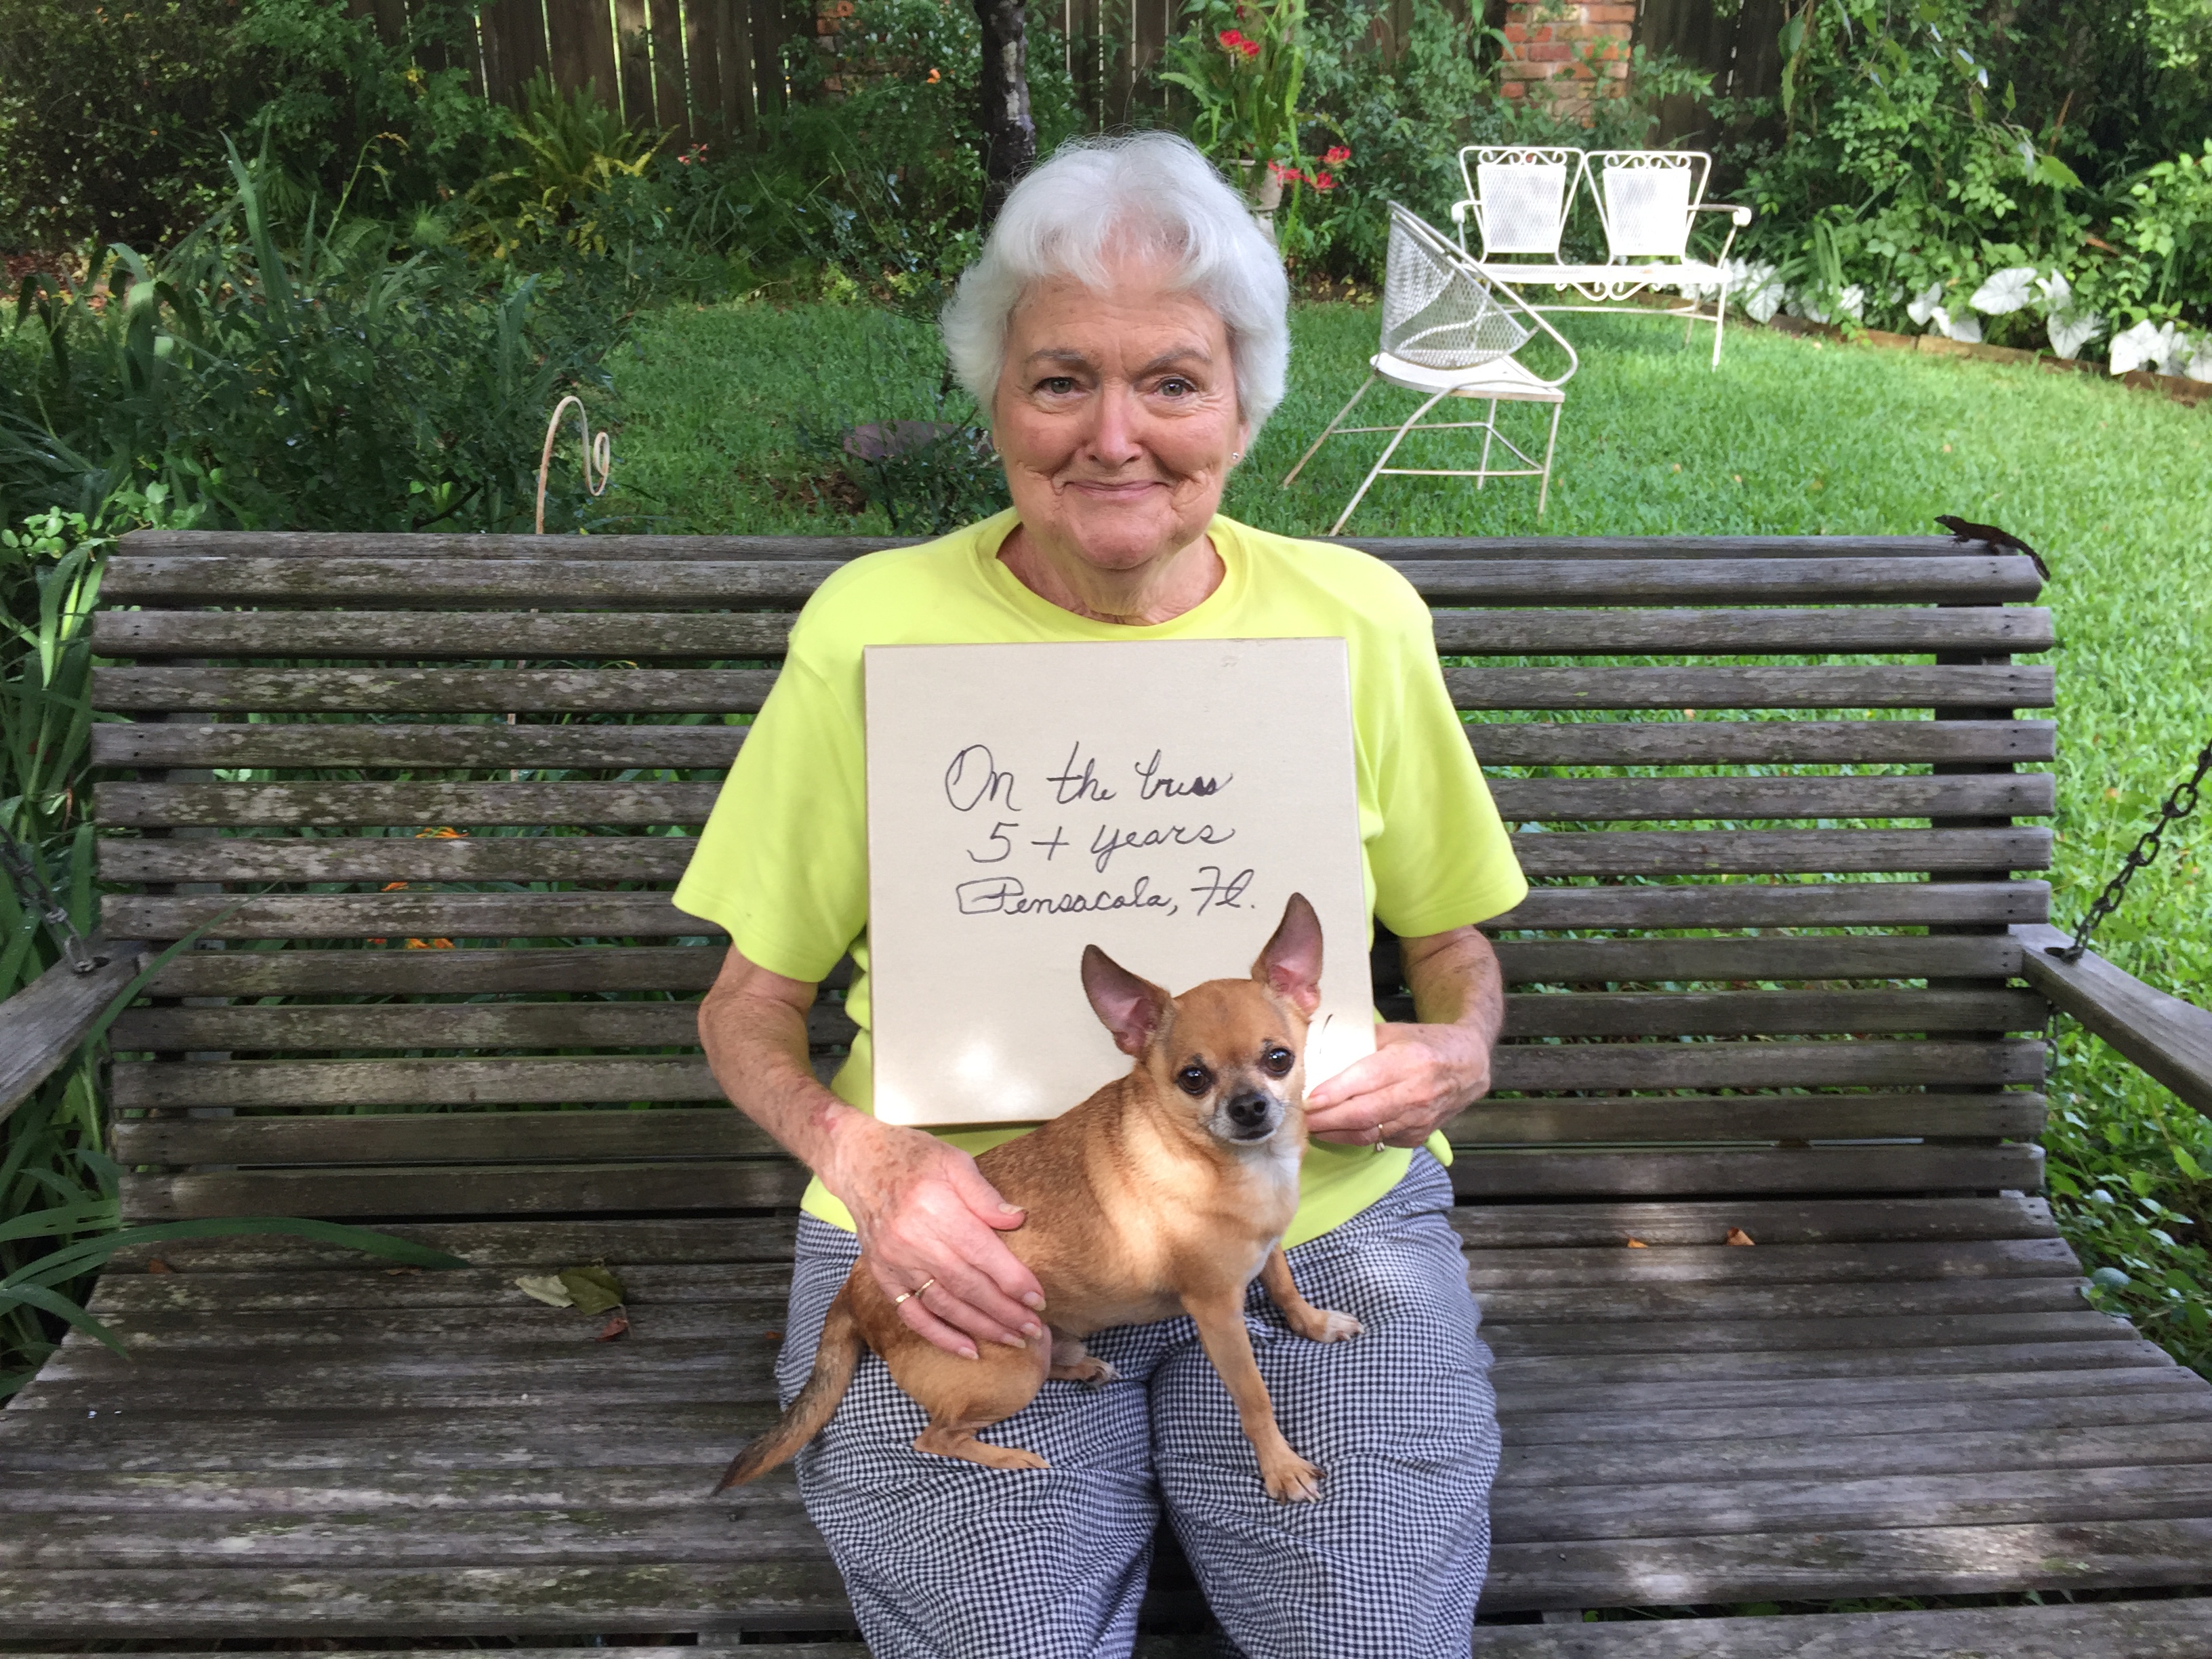 On the truss
5+ years
Pensacola, Fl.